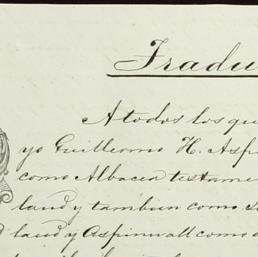 Tradu
A todos los qu
yo Guillermo H. Asp
como Albacea testame
land y tambien como
land y Aspinwall como